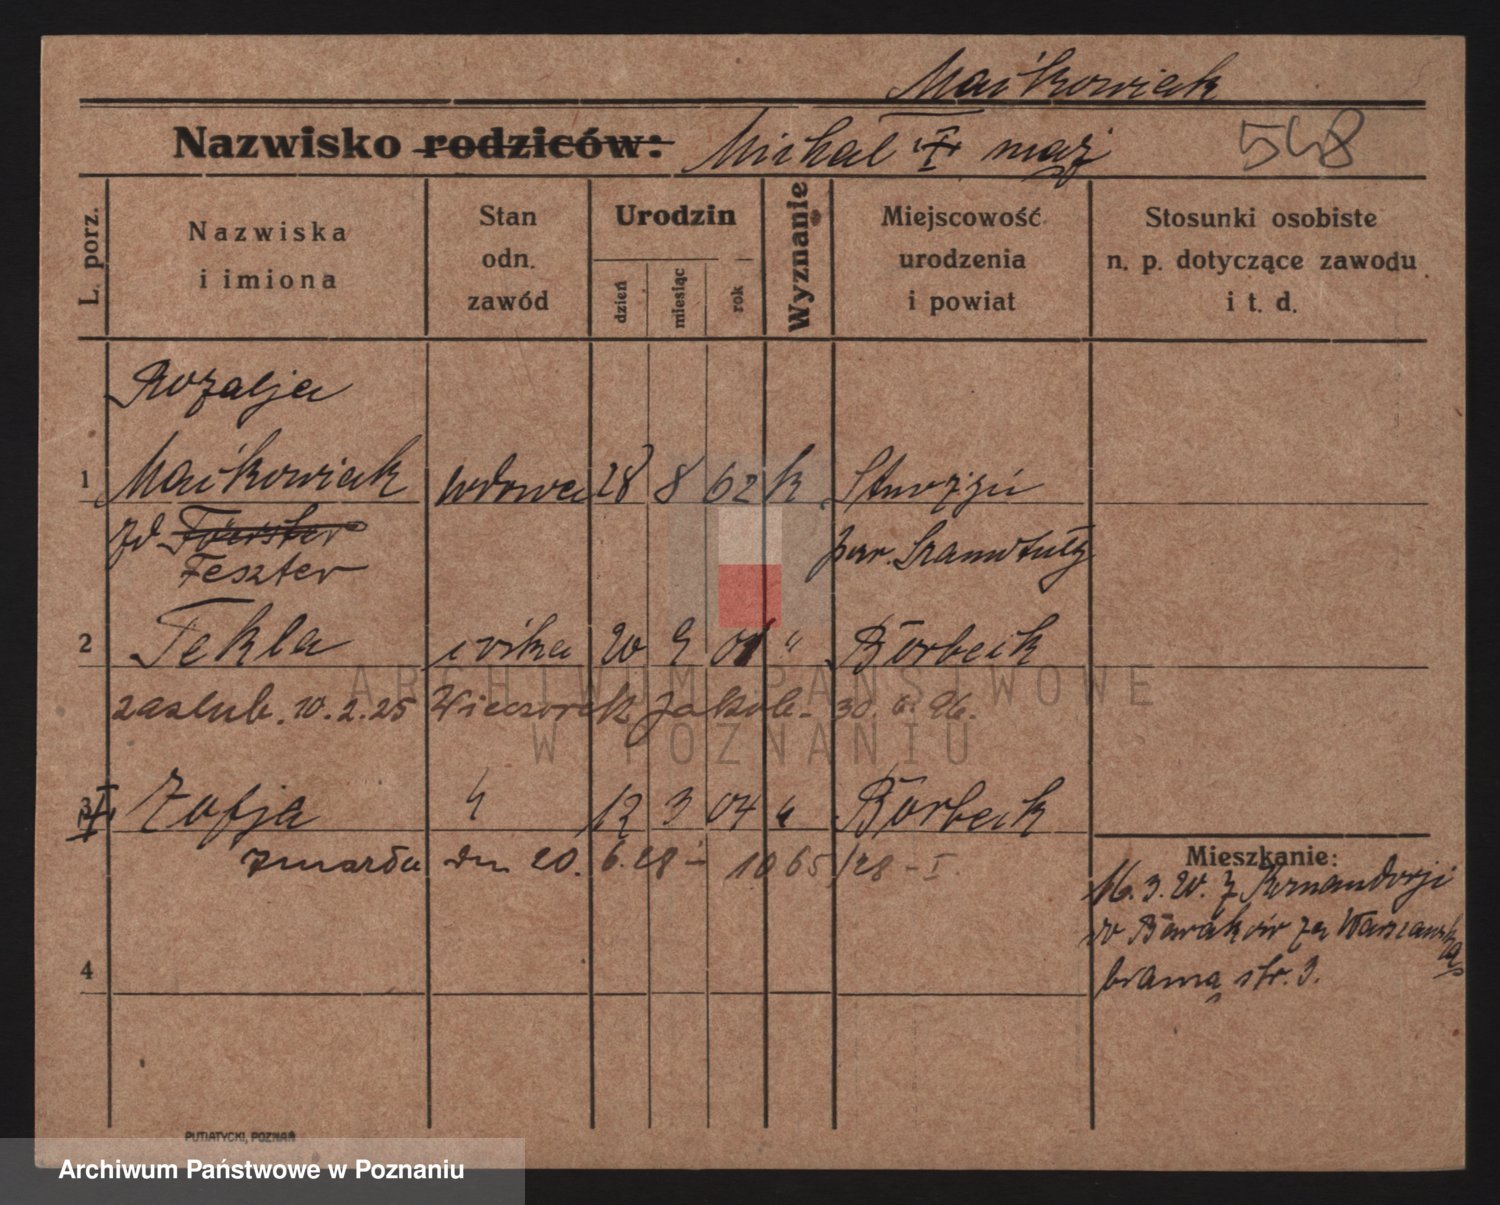 Maćkowiak
Nazwisko rodziców: Michał I mąż 548
L. porz.
Nazwiska i imiona
Stan odn. zawód
Urodzin
dzień
miesiąc
rok
Wyznanie
Miejscowość urodzenia i powiat
Stosunki osobiste n. p. dotyczące zawodu i t. d.
Rozalja
1 Maćkowiak wdowa 28 8 62 k
zd Foerster par. Szamotuły
Feszter
2 Tekla córka 20 9 01 " Borbeck
zaślub. 10.2.25 Wieczorek Jakób - 30. 6. 96.
3 Zofja " 12 3 04 " Borbeck
zmarła dn 20. 6. 28 - 1065/28 - I.
Mieszkanie:
16. 3. 20. z
do Baraków za Warszawską
4
bramą str. 3.
PUTIATYCKI, POZNAŃ
ARCHIWUM PAŃSTWOWE
W POZNANIU
Archiwum Państwowe w Poznaniu